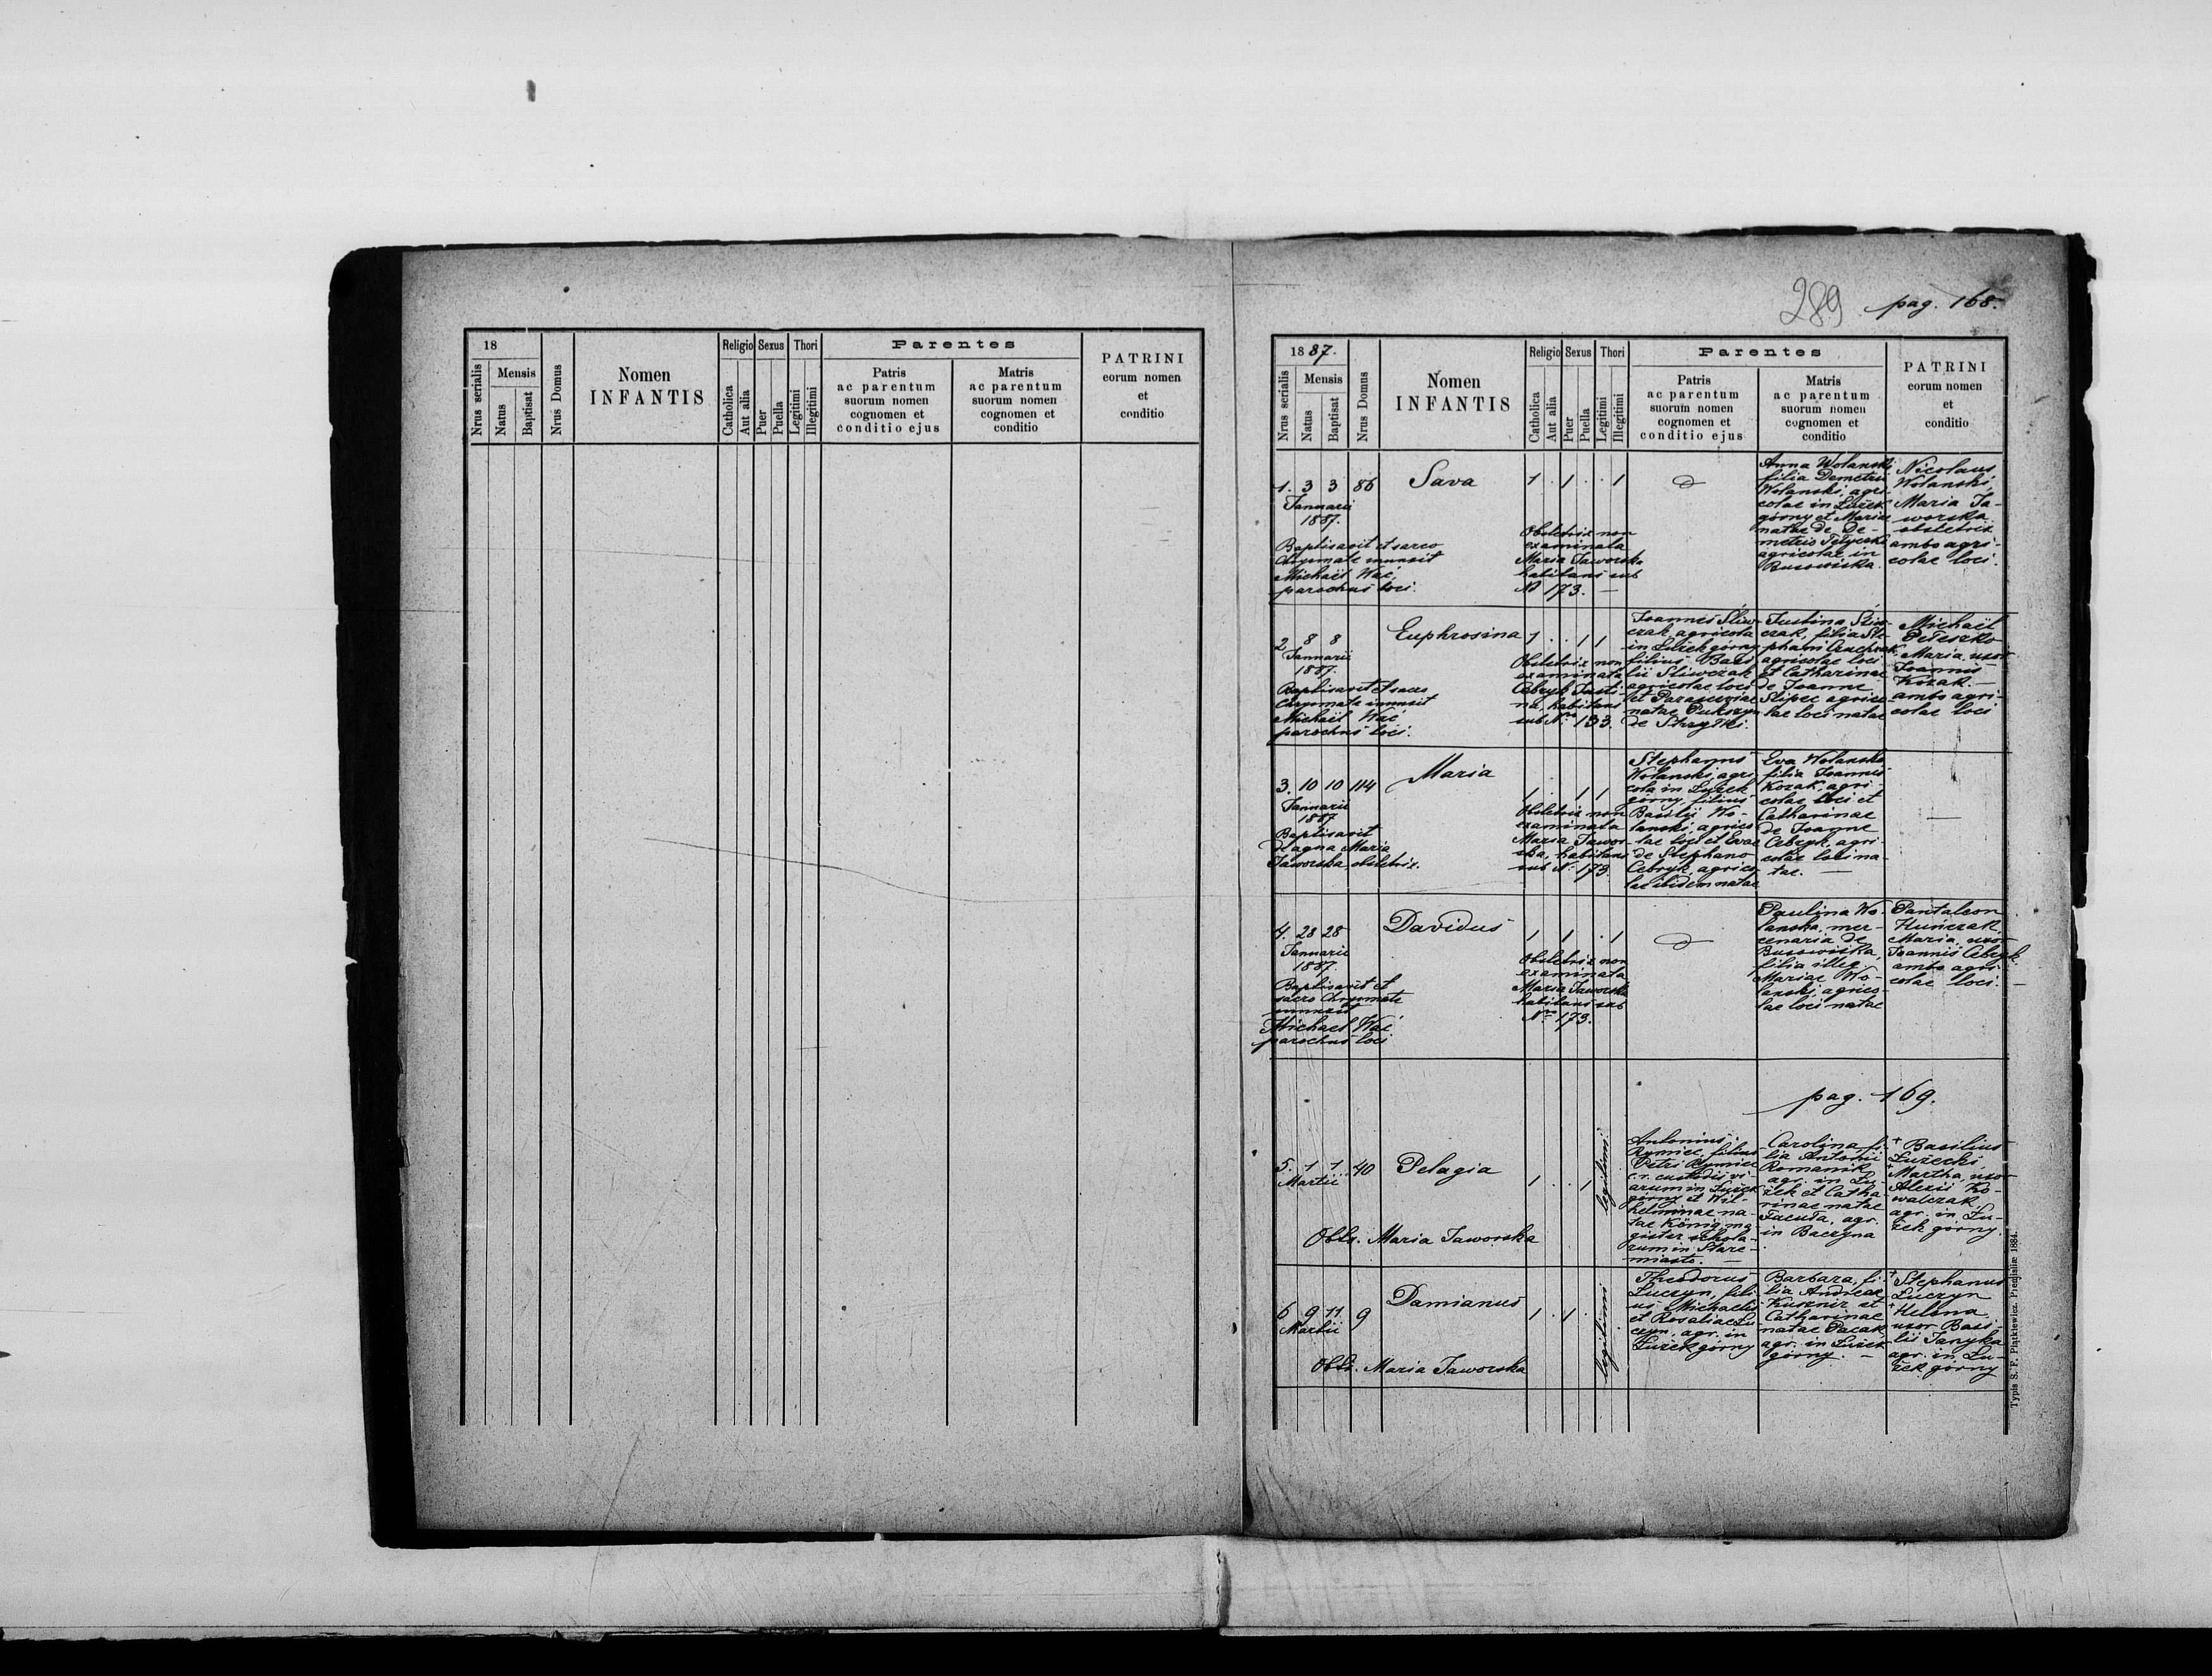 289 pag. 168.
18
Nrus serialis
Mensis
Natus
Baptisat
Nrus Domus
Nomen
INFANTIS
Religio
Catholica
Aut alia
Sexus
Puer
Puella
Thori
Legitimi
Illegitimi
Parentes
Patris
ac parentum
suorum nomen
cognomen et
conditio ejus
Matris
ac parentum
suorum nomen
cognomen et
conditio
PATRINI
eorum nomen
et
conditio
1887.
Nrus serialis
Mensis
Natus
Baptisat
Nrus Domus
Nomen
INFANTIS
Religio
Catholica
Aut alia
Sexus
Puer
Puella
Thori
Legitimi
Illegitimi
Parentes
Patris
ac parentum
suorum nomen
cognomen et
conditio ejus
Matris
ac parentum
suorum nomen
cognomen et
conditio
PATRINI
eorum nomen
et
conditio
1. 3 3 86
Januarii
1887.
Baptisavit et sacro
Chrysmate inunxit
Michaël Wać,
parochus loci.
Sava
1 . 1 . . 1
Obstetrix non
examinata
Maria Jaworska
habitans sub
N 173. —
Anna Wolanski
filia Demetrii
Wolanski, agri-
colae in Łużek
górny et Mariae
natae de De-
metrio
agricolae in
Busowiska.
Nicolaus
Wolanski,
Maria Ja-
worska
obstetrix
ambo agri-
colae loci.
2 8 8
Januarii
1887.
Baptisavit et sacro
Chrysmate inunxit
Michaël Wać
parochus loci.
Euphrosina
1 . . 1 1
Obstetrix non
examinata
Cebryk Justi-
na, habitans
sub Nro 133.
Joannes Śliw-
czak agricola
in Łużek górny
filius Basi-
lii Śliwczak
agricolae loci
et Parasceviae
natae
de Strzyłki.
Justina Śliw-
czak, filia Ste-
phani
agricolae loci
et Catharinae
de Joanne
Slipec agrico-
lae loci natae
Michaël
Peleszko
Maria, uxor
Joannis
Kozak. —
ambo agri-
colae loci
3. 10 10 114
Januarii
1887
Baptisavit
de agna Maria
Jaworska, obstetrix.
Maria
1 . . 1 1
Obstetrix non
examinata
Maria Jawor-
ska, habitans
sub N. 173.
Stephanus
Wolanski, agri-
cola in Łużek
górny, filius
Basilii Wo-
lanski, agrico-
lae loci et Evae
de Stephano
Cebryk, agrico-
lae ibidem natae
Eva Wolanska
filia Joannis
Kozak, agri-
colae loci et
Catharinae
de Joanne
Cebryk, agri-
colae loci na-
tae. —
—
4. 28 28
Januarii
1887.
Baptisavit et
sacro Chrysmate
inunxit
Michaël Wać
parochus loci
Davidus
1 1 . 1
Obstetrix non
examinata
Maria Jaworska
habitans sub
Nro 173.
Paulina Wo-
lanska, mer-
cenaria de
Busowiska,
filia illeg.
Mariae Wo-
lanski, agrico-
lae loci natae
Pantaleon
Huńczak,
Maria, uxor
Joannis Cebryk
ambo agri-
colae loci. —
pag. 169.
5. 1 1 40
Martii
Pelagia
1 . . 1
legitimi
Obstr. Maria Jaworska
Antonius
Rymiec, filius
Petri Rymiec
c.r. custodis vi-
arum in Łużek
górny et Wil-
helminae na-
tae König, ma-
gister schola-
rum in Stare-
miasto. —
Carolina, fi-
lia Antonii
Romanik,
agr. in Łu-
żek et Catha-
rinae natae
Facuta, agr.
in Baczyna
+ Basilius
Łużecki
+ Martha, uxor
Alexii Ko-
walczak,
agr. in Łu-
żek górny.
6 9 11 9
Martii
Damianus
1 . 1 .
legitimi
Obstr. Maria Jaworska
Theodorus
Łuczyn, fili-
us Michaelis
et Rosaliae Łu-
czyn, agr. in
Łużek górny
Barbara, fi-
lia Andreae
Kusznir et
Catharinae
natae Pacak,
agr. in Łużek
górny. —
+ Stephanus
Łuczyn
+ Helena
uxor Basi-
lii Janyka
agr. in Łu-
żek górny
Typis S. F. Piątkiewicz. Premisliae 1884.